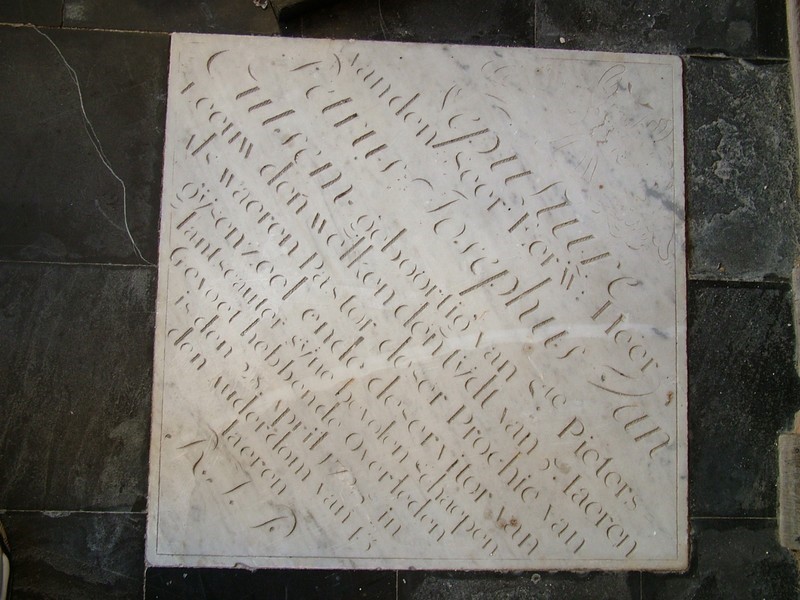 Sepulture
van den seer Eerw. Heer
Petrus Josephus Van
Cutsem geboortig van Ste Pieters
Leeuw den welken den tydt van 5 Iaeren
als waeren pastor deser prochie van
gÿsenzeel ende deservitor van
Lantscauter syne bevolen schaepen
Gevoet hebbende overleden
is den 28 April in
den auderdom van 43
Iaeren
R.I.P